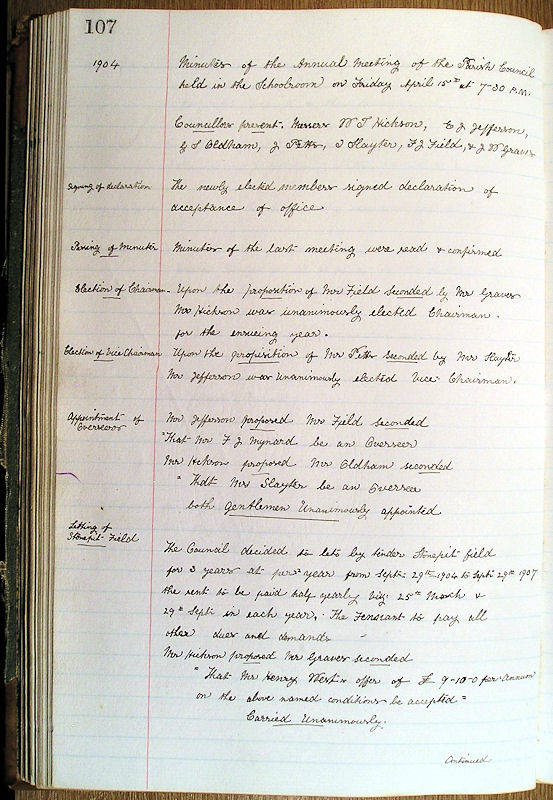 107
1904
Minutes of the Annual Meeting of the Parish Council
held in the Schoolroom on Friday April 15th at 7-30 P.M.
Councillors present. Messrs W T Hickson, C J Jefferson,
G S Oldham, J Petts, T Slayter, F J Field, & J W Graves
Signing of declaration
The newly elected members signed declaration of
acceptance of office
Passing of Minutes
Minutes of the last meeting were read & confirmed
Election of Chairman
Upon the proposition of Mr Field seconded by Mr Graves
Mr Hickson was unanimously elected Chairman.
for the ensueing year.
Election of Vice Chairman
Upon the proposition of Mr Petts seconded by Mr Slayter
Mr Jefferson was unanimously elected Vice Chairman.
Appointment of
Overseeror
Mr Jefferson proposed Mr Field seconded
"That Mr F J Mynard be an Overseer
Mr Hickson proposed Mr Oldham seconded
" That Mr Slayter be an Overseer
both gentlemen Unanimously appointed
Letting of
Stonepit Field
The Council decided to let by tender Stonepit field
for 3 years at per year from Septr 29th 1904 to Septr 29th 1907
the rent to be paid half yearly Viz: 25th March &
29th Septr in each year. The Tennant to pay all
other dues and demands
Mr Hickson proposed Mr Graves seconded
" That Mr Henry West's offer of £ 9-10-0 per Annum
on the above named conditions be accepted "
Carried Unanimously.
Continued